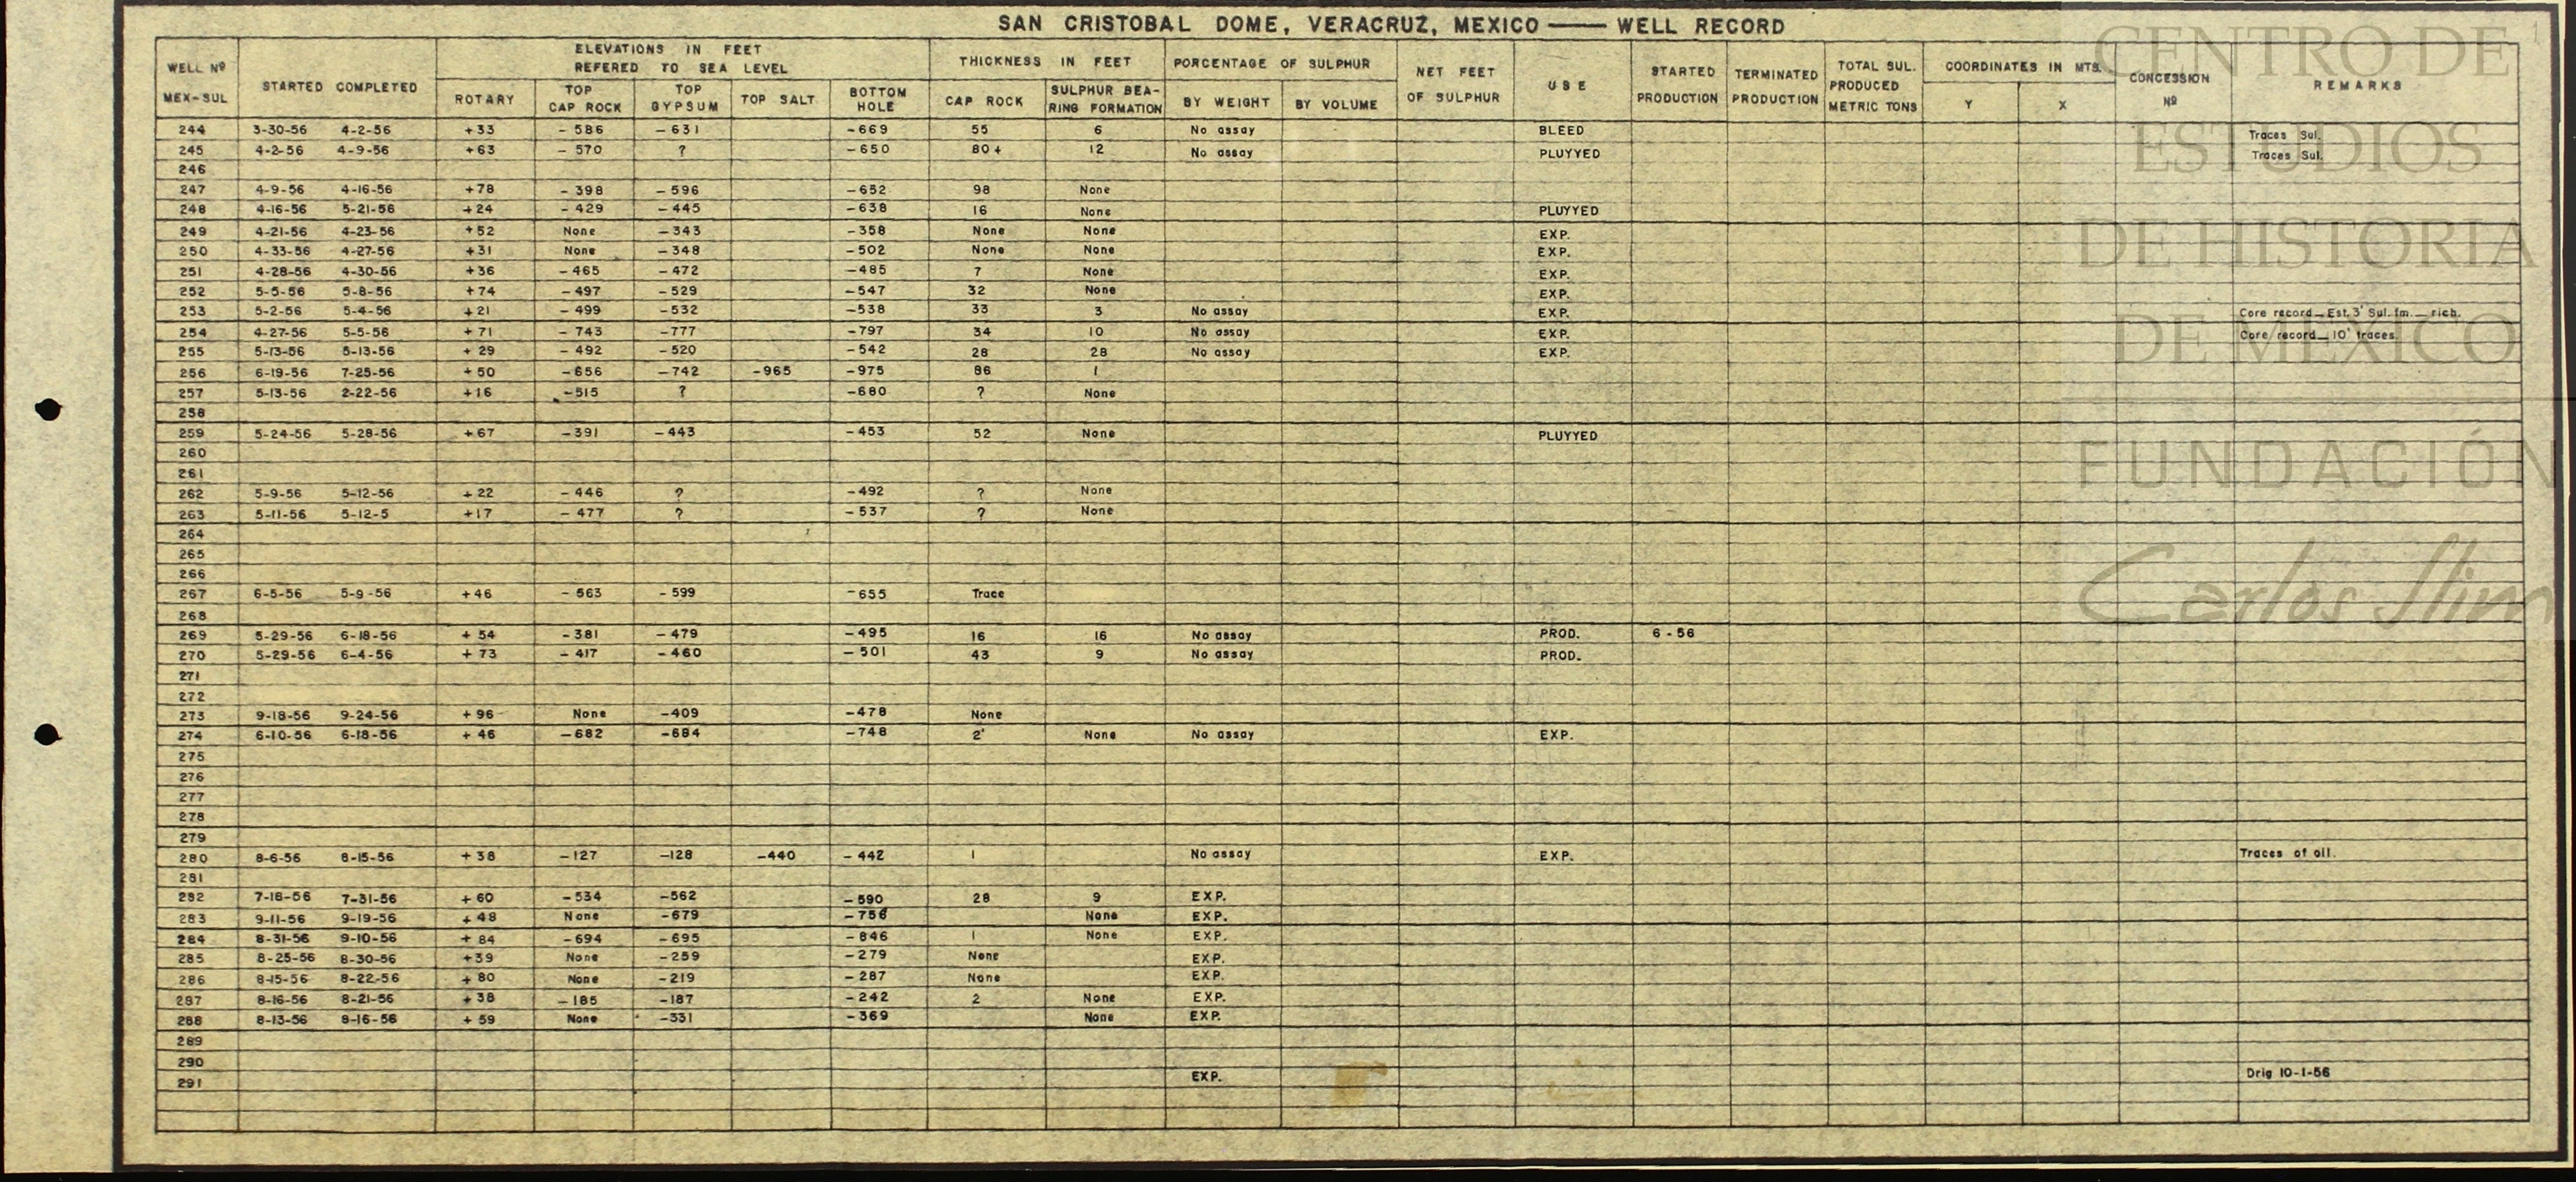 SAN CRISTOBAL DOME, VERACRUZ, MEXICO — WELL RECORD
WELL Nº MEX-SUL STARTED COMPLETED ELEVATIONS IN FEET REFERED TO SEA LEVEL THICKNESS IN FEET PORCENTAGE OF SULPHUR NET FEET OF SULPHUR USE STARTED PRODUCTION TERMINATED PRODUCTION TOTAL SUL. PRODUCED METRIC TONS COORDINATES IN MTS. CONCESSION Nº REMARKS
ROTARY TOP CAP ROCK TOP GYPSUM TOP SALT BOTTOM HOLE CAP ROCK SULPHUR BEA-RING FORMATION BY WEIGHT BY VOLUME Y X
244 3-30-56 4-2-56 +33 -586 -631 -669 55 6 No assay BLEED Traces Sul.
245 4-2-56 4-9-56 +63 -570 ? -650 80+ 12 No assay PLUYYED Traces Sul.
246
247 4-9-56 4-16-56 +78 -398 -596 -652 98 None
248 4-16-56 5-21-56 +24 -429 -445 -638 16 None PLUYYED
249 4-21-56 4-23-56 +52 None -343 -358 None None EXP.
250 4-33-56 4-27-56 +31 None -348 -502 None None EXP.
251 4-28-56 4-30-56 +36 -465 -472 -485 7 None EXP.
252 5-5-56 5-8-56 +74 -497 -529 -547 32 None EXP.
253 5-2-56 5-4-56 +21 -499 -532 -538 33 3 No assay EXP. Core record — Est. 3' Sul. fm. — rich.
254 4-27-56 5-5-56 +71 -743 -777 -797 34 10 No assay EXP. Core record — 10' traces.
255 5-13-56 5-13-56 +29 -492 -520 -542 28 28 No assay EXP.
256 6-19-56 7-25-56 +50 -656 -742 -965 -975 86 1
257 5-13-56 2-22-56 +16 -515 ? -680 ? None
258
259 5-24-56 5-28-56 +67 -391 -443 -453 52 None PLUYYED
260
261
262 5-9-56 5-12-56 +22 -446 ? -492 ? None
263 5-11-56 5-12-5 +17 -477 ? -537 ? None
264
265
266
267 6-5-56 5-9-56 +46 -563 -599 -655 Trace
268
269 5-29-56 6-18-56 +54 -381 -479 -495 16 16 No assay PROD. 6-56
270 5-29-56 6-4-56 +73 -417 -460 -501 43 9 No assay PROD.
271
272
273 9-18-56 9-24-56 +96 None -409 -478 None
274 6-10-56 6-18-56 +46 -682 -684 -748 2' None No assay EXP.
275
276
277
278
279
280 8-6-56 8-15-56 +38 -127 -128 -440 -442 1 No assay EXP. Traces of oil.
281
282 7-18-56 7-31-56 +60 -534 -562 -590 28 9 EXP.
283 9-11-56 9-19-56 +48 None -679 -756 None EXP.
284 8-31-56 9-10-56 +84 -694 -695 -846 1 None EXP.
285 8-25-56 8-30-56 +39 None -259 -279 None EXP.
286 8-15-56 8-22-56 +80 None -219 -287 None EXP.
287 8-16-56 8-21-56 +38 -185 -187 -242 2 None EXP.
288 8-13-56 9-16-56 +59 None -331 -369 None EXP.
289
290
291 EXP. Drig 10-1-56
CENTRO DE
ESTUDIOS
DE HISTORIA
DE MÉXICO
FUNDACIÓN
Carlos Slim